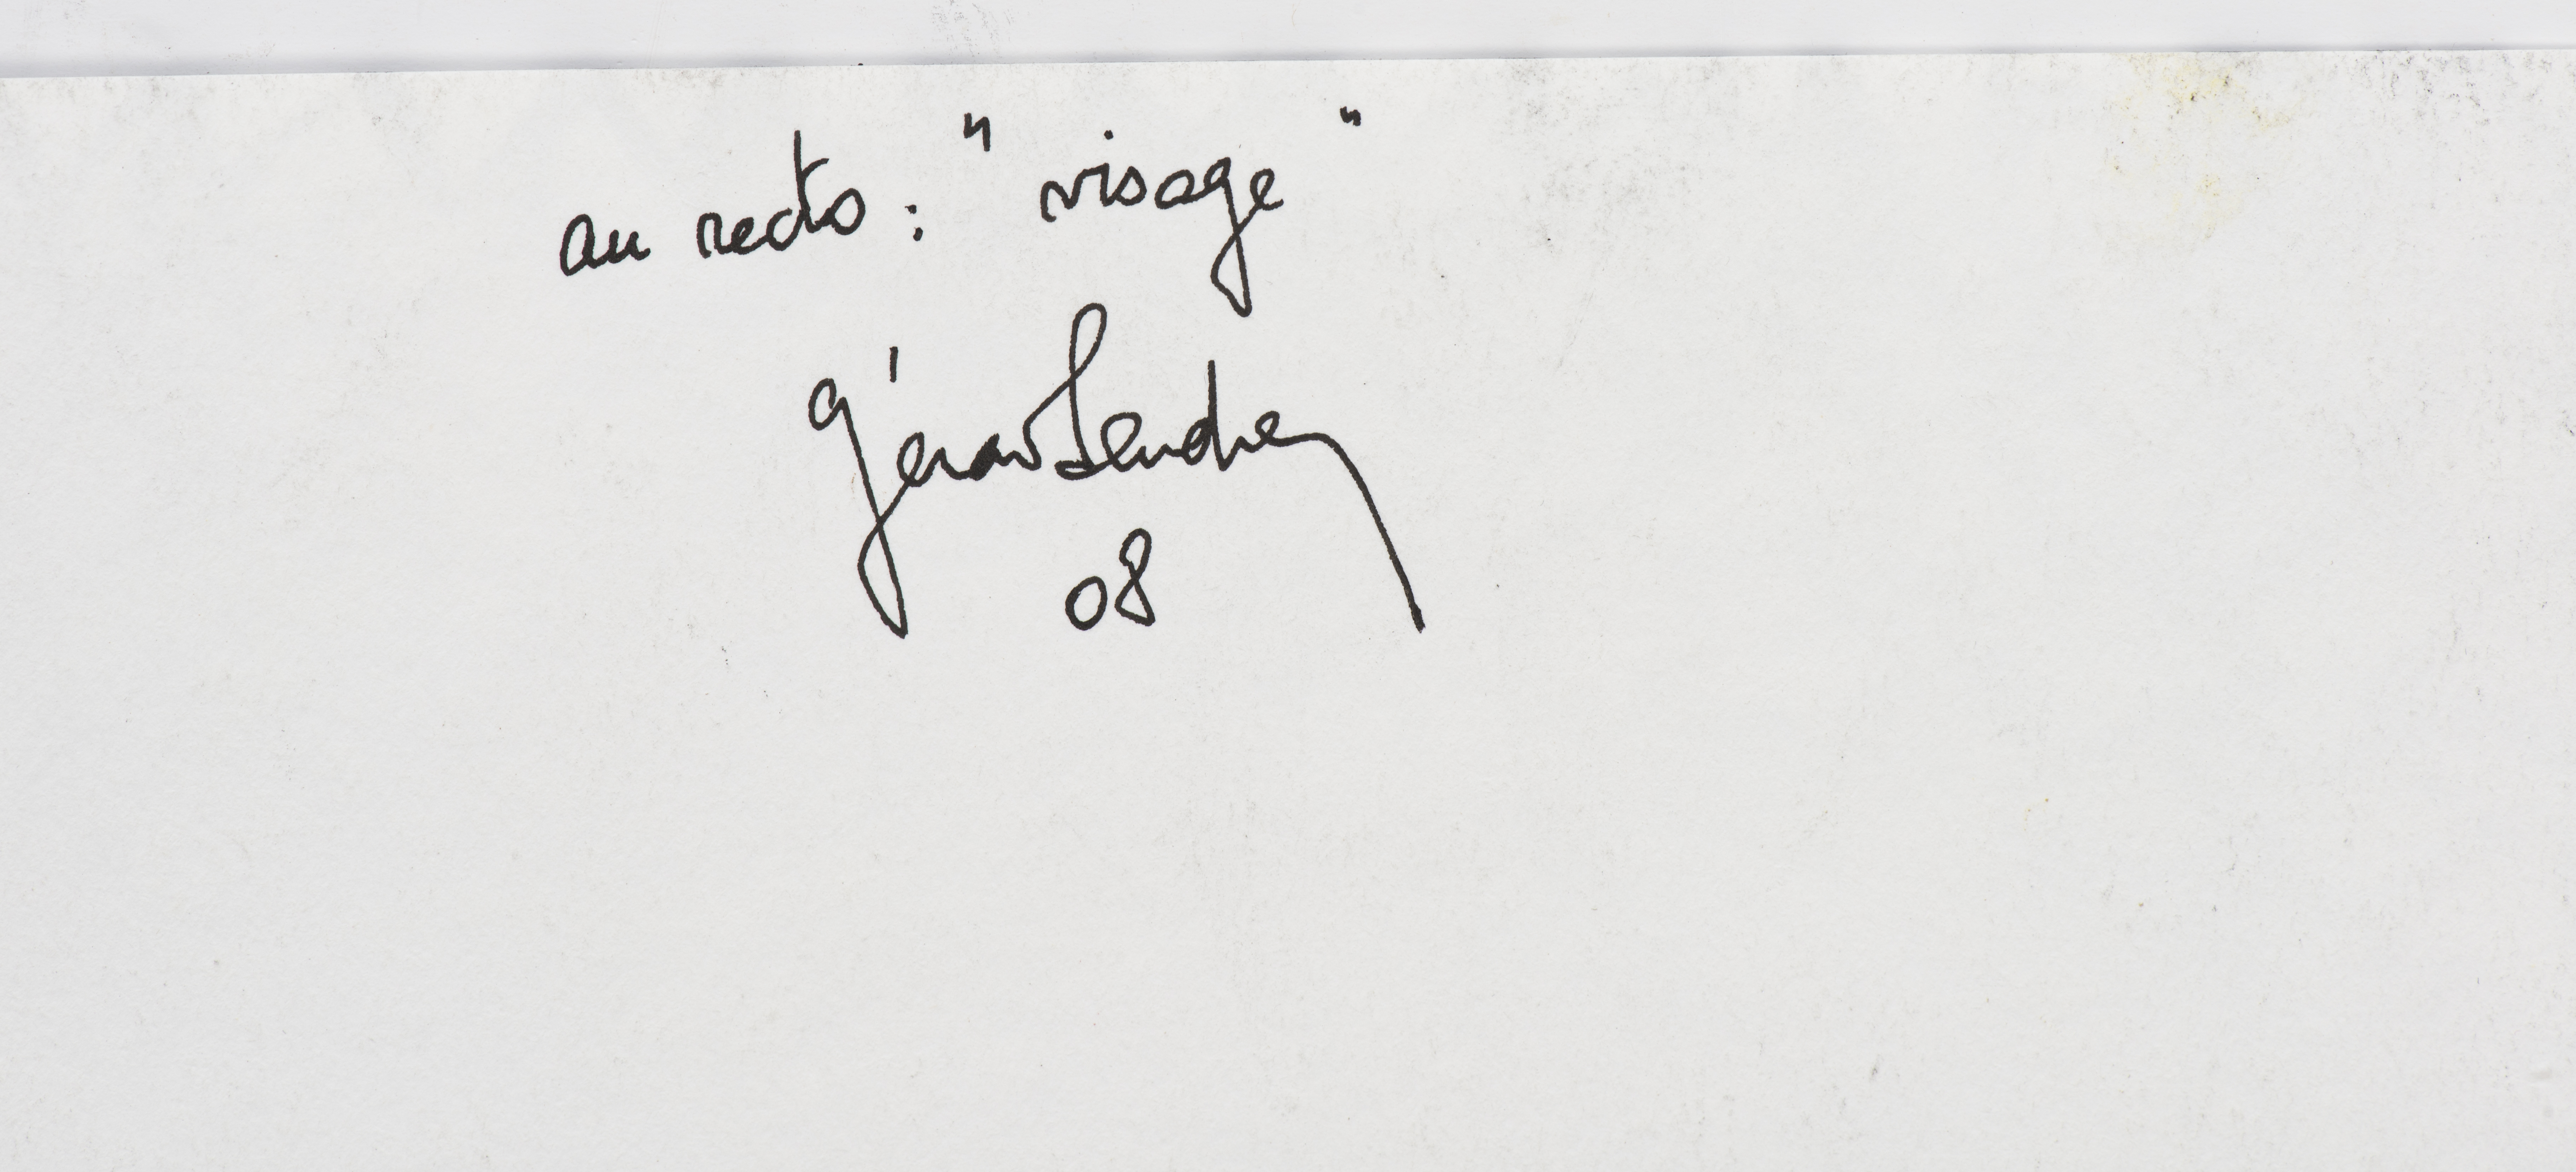 au recto : " visage "
Gérard Sendrey
08